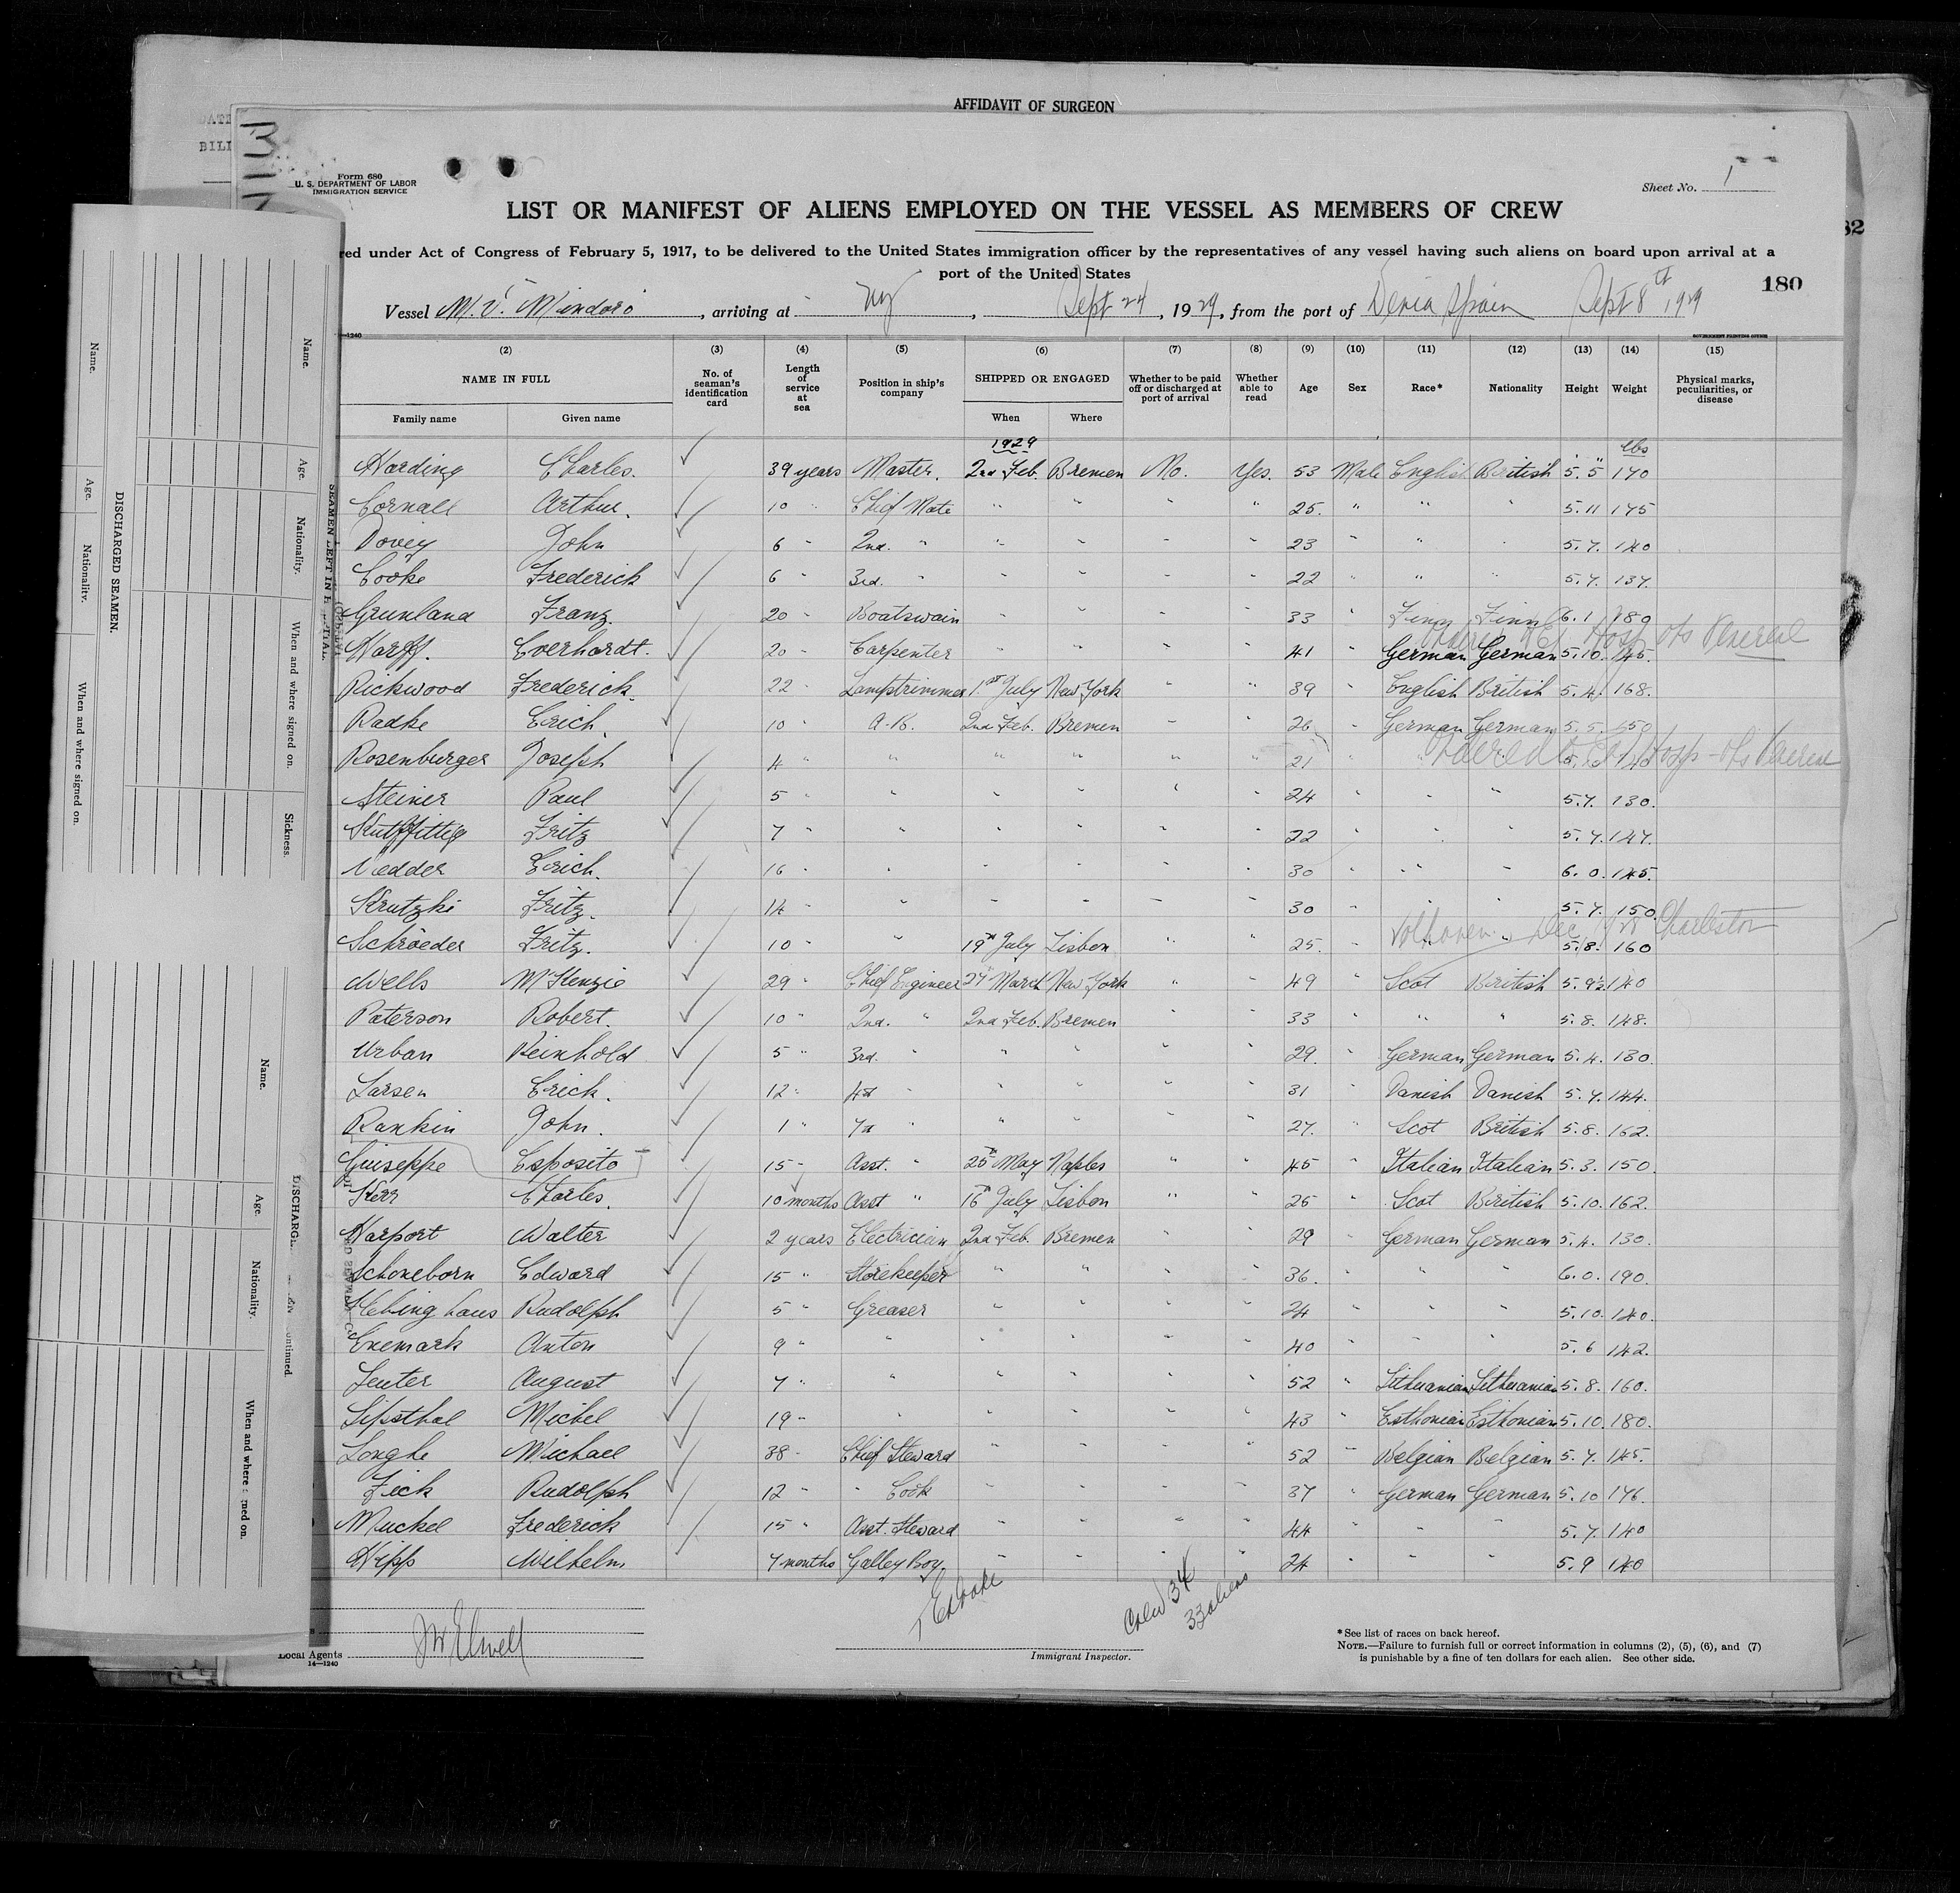 AFFIDAVIT OF SURGEON
Form 680
U. S. DEPARTMENT OF LABOR
IMMIGRATION SERVICE
Sheet No. 1
LIST OR MANIFEST OF ALIENS EMPLOYED ON THE VESSEL AS MEMBERS OF CREW
red under Act of Congress of February 5, 1917, to be delivered to the United States immigration officer by the representatives of any vessel having such aliens on board upon arrival at a
port of the United States
180
Vessel M.V. Mindoro, arriving at NY, Sept 24, 1929, from the port of Denia Spain Sept 8th 1929
(2) (3) (4) (5) (6) (7) (8) (9) (10) (11) (12) (13) (14) (15)
NAME IN FULL No. of seaman's identification card Length of service at sea Position in ship's company SHIPPED OR ENGAGED Whether to be paid off or discharged at port of arrival Whether able to read Age Sex Race* Nationality Height Weight Physical marks, peculiarities, or disease
Family name Given name When Where
1929 lbs
Harding Charles. 39 years Master. 2nd Feb. Bremen No. Yes. 53 Male English British 5.5 170
Cornall Arthur. 10 " Chief Mate " " " " 25. " " " 5.11 175
Dovey John 6 " 2nd. " " " " " 23 " " " 5.7. 140
Cooke Frederick 6 " 3rd. " " " " " 22 " " " 5.7. 137.
Grunland Franz. 20 " Boatswain " " " " 33 " Finn Finn 6.1 180
Harff. Everhardt. 20 " Carpenter " " " " 41 " German German 5.10. 145.
Hosp obs Venereal
Rickwood Frederick. 22 " Lamptrimmer 1st July New York " " 39 " English British 5.4. 168.
Radke Erich. 10 " A.B. 2nd Feb. Bremen " " 26 German German 5.5. 150
Rosenburger Joseph 4 " " " " " " 21
Hosp - obs Venereal
Steiner Paul 5 " " " " " " 24 " " " 5.7. 130.
Fritz 7 " " " " " " 22 " " " 5.7. 147.
Vedder Erich. 16 " " " " " " 30 " " " 6.0. 145.
Krutzki Fritz. 14 " " " " " " 30 " " " 5.7. 150.
Dec 1928 Charleston
Schröeder Fritz. 10 " " 19th July Lisbon " " 25. " " " 5.8. 160
Wells McKenzie 29 " Chief Engineer 27th March New York " " 49 " Scot British 5.9½ 140
Paterson Robert. 10 " 2nd. " 2nd Feb. Bremen " " 33 " " " 5.8. 148.
Urban Reinhold 5 " 3rd. " " " " " 29. " German German 5.4. 130.
Larsen Erick. 12 " 4th " " " " " 31 " Danish Danish 5.7. 144.
Rankin John. 1 " 7th " " " " " 27. " Scot British 5.8. 162.
Giuseppe Esposito 15 " Asst. " 25th May Naples " " 45 " Italian Italian 5.3. 150.
Kerr Charles. 10 months Asst " 16th July Lisbon " " 25 " Scot British 5.10. 162.
Harport Walter 2 years Electrician 2nd Feb. Bremen " " 29 " German German 5.4. 130.
Schoneborn Edward 15 " Storekeeper " " " " 36. " " " 6.0. 190.
Hebinghaus Rudolph 5 " Greaser " " " " 24 " " " 5.10. 140.
Enemark Anton 9 " " " " " " 40 " " " 5.6 142.
Lenter August 7 " " " " " " 52 " Lithuanian Lithuanian 5.8. 160.
Lipsthal Michel 19 " " " " " " 43 " Esthonian Esthonian 5.10. 180.
Longhe Michael 38 " Chief Steward " " " " 52 " Belgian Belgian 5.7. 145.
Fick Rudolph 12 " " Cook " " " " 37 " German German 5.10 176.
Muckel Frederick 15 " Asst. Steward " " " " 44 " " " 5.7. 140
Hipp Wilhelm 7 months Galley Boy. " " " " 24 " " " 5.9 140
Crew 34
33 aliens
J W Elwell
Local Agents
14—1240
Immigrant Inspector.
*See list of races on back hereof.
NOTE.—Failure to furnish full or correct information in columns (2), (5), (6), and (7)
is punishable by a fine of ten dollars for each alien. See other side.
DISCHARGED SEAMEN.
Name. Age. Nationality. When and where signed on.
Name. Age. Nationality. When and where signed on. Sickness.
Name. Age. Nationality. When and where signed on.